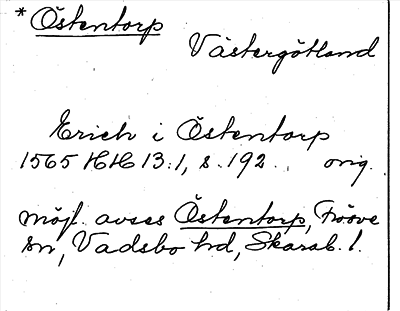 * Östentorp
Västergötland
Erich i Östentorp
1565 HH 13:1, s. 192. orig.
möjl. avses Östentorp, Frösve
sn, Vadsbo hd, Skarab. l.